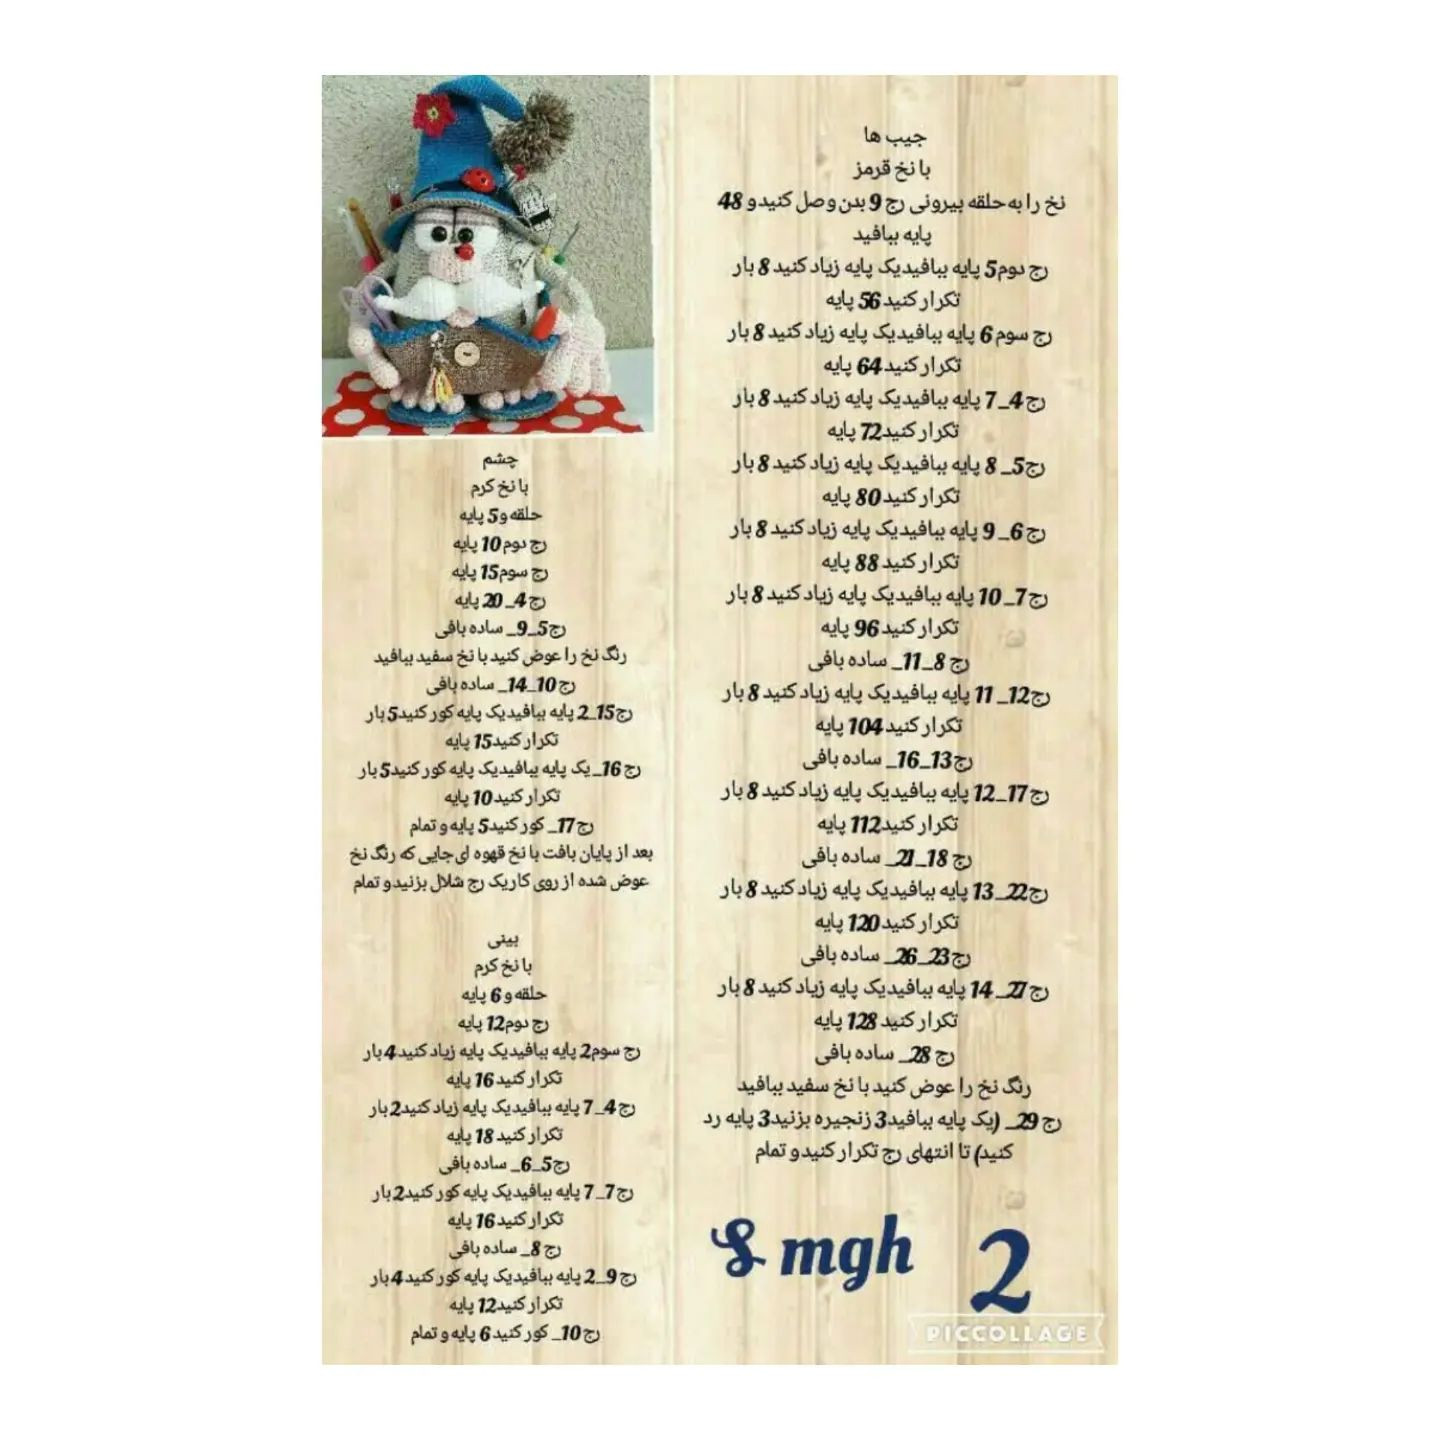 جیب ها
با نخ قرمز
نخ را به حلقه بیرونی رج 9 بدن وصل کنید و 48
پایه ببافید
رج دوم 5 پایه ببافید یک پایه زیاد کنید 8 بار
تکرار کنید 56 پایه
رج سوم 6 پایه ببافید یک پایه زیاد کنید 8 بار
تکرار کنید 64 پایه
رج 4_ 7 پایه ببافید یک پایه زیاد کنید 8 بار
تکرار کنید 72 پایه
رج 5_ 8 پایه ببافید یک پایه زیاد کنید 8 بار
تکرار کنید 80 پایه
رج 6_ 9 پایه ببافید یک پایه زیاد کنید 8 بار
تکرار کنید 88 پایه
رج 7_ 10 پایه ببافید یک پایه زیاد کنید 8 بار
تکرار کنید 96 پایه
رج 8_11_ ساده بافی
رج 12_ 11 پایه ببافید یک پایه زیاد کنید 8 بار
تکرار کنید 104 پایه
رج 13_16_ ساده بافی
رج 17_ 12 پایه ببافید یک پایه زیاد کنید 8 بار
تکرار کنید 112 پایه
رج 18_21_ ساده بافی
رج 22_ 13 پایه ببافید یک پایه زیاد کنید 8 بار
تکرار کنید 120 پایه
رج 23_26_ ساده بافی
رج 27_ 14 پایه ببافید یک پایه زیاد کنید 8 بار
تکرار کنید 128 پایه
رج 28_ ساده بافی
رنگ نخ را عوض کنید با نخ سفید ببافید
رج 29_ (یک پایه ببافید 3 زنجیره بزنید 3 پایه رد
کنید) تا انتهای رج تکرار کنید و تمام
چشم
با نخ کرم
حلقه و 5 پایه
رج دوم 10 پایه
رج سوم 15 پایه
رج 4_ 20 پایه
رج 5_9_ ساده بافی
رنگ نخ را عوض کنید با نخ سفید ببافید
رج 10_14_ ساده بافی
رج 15_2 پایه ببافید یک پایه کور کنید 5 بار
تکرار کنید 15 پایه
رج 16_ یک پایه ببافید یک پایه کور کنید 5 بار
تکرار کنید 10 پایه
رج 17_ کور کنید 5 پایه و تمام
بعد از پایان بافت با نخ قهوه ای جایی که رنگ نخ
عوض شده از روی کار یک رج شلال بزنید و تمام
بینی
با نخ کرم
حلقه و 6 پایه
رج دوم 12 پایه
رج سوم 2 پایه ببافید یک پایه زیاد کنید 4 بار
تکرار کنید 16 پایه
رج 4_ 7 پایه ببافید یک پایه زیاد کنید 2 بار
تکرار کنید 18 پایه
رج 5_6_ ساده بافی
رج 7_ 7 پایه ببافید یک پایه کور کنید 2 بار
تکرار کنید 16 پایه
رج 8_ ساده بافی
رج 9_2 پایه ببافید یک پایه کور کنید 4 بار
تکرار کنید 12 پایه
رج 10_ کور کنید 6 پایه و تمام
mgh 2
PICCOLLAGE